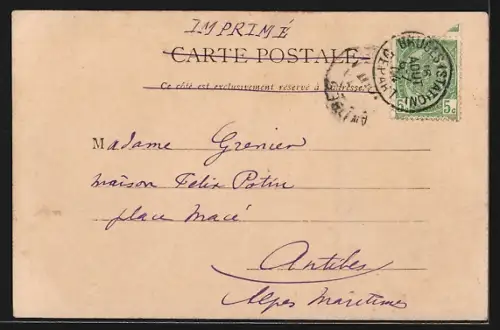 IMPRIMÉ
CARTE POSTALE
Ce côté est exclusivement réservé à l'adresse.
BRUGES (STATION)
AOUT
(DEPART)
5 5c
Madame Grenier
maison Felix Potin
place Macé
Antibes
Alpes Maritimes